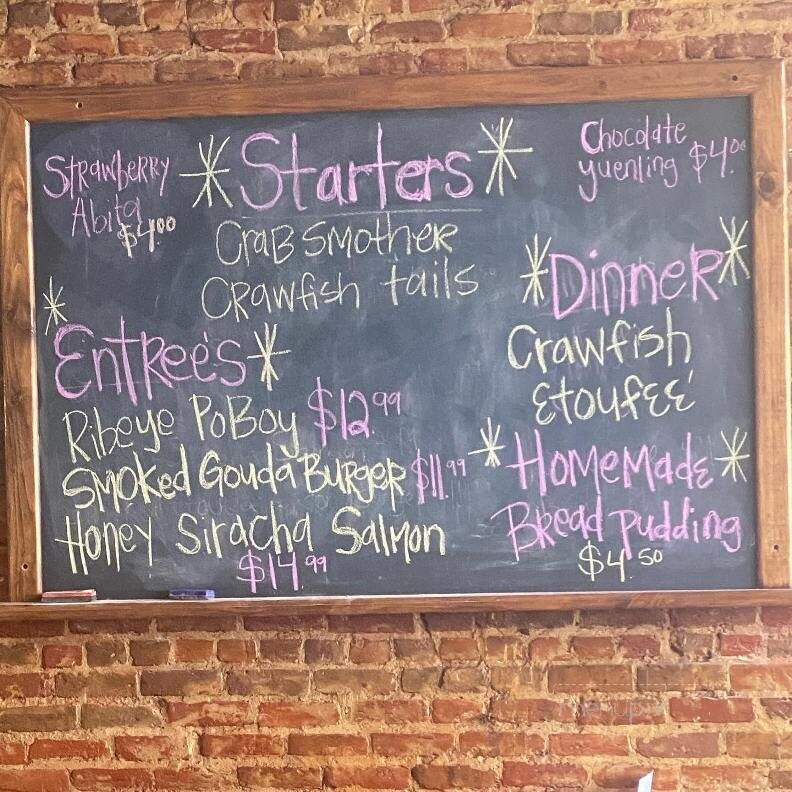 Strawberry
Abita
$4.00
*Starters*
Crab Smother
Crawfish tails
Chocolate
yuenling $4.00
*Entree's*
Ribeye PoBoy $12.99
Smoked Gouda Burger $11.99
Honey Siracha Salmon
$14.99
*Dinner*
Crawfish
Etoufee'
*Homemade*
Bread Pudding
$4.50